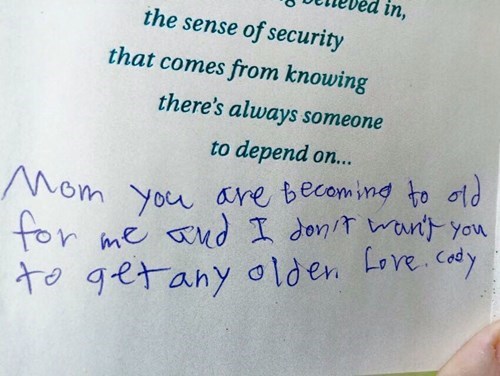 believed in,
the sense of security
that comes from knowing
there's always someone
to depend on...
Mom you are becoming to old
for me and I don't want you
to get any older. Love. Cody